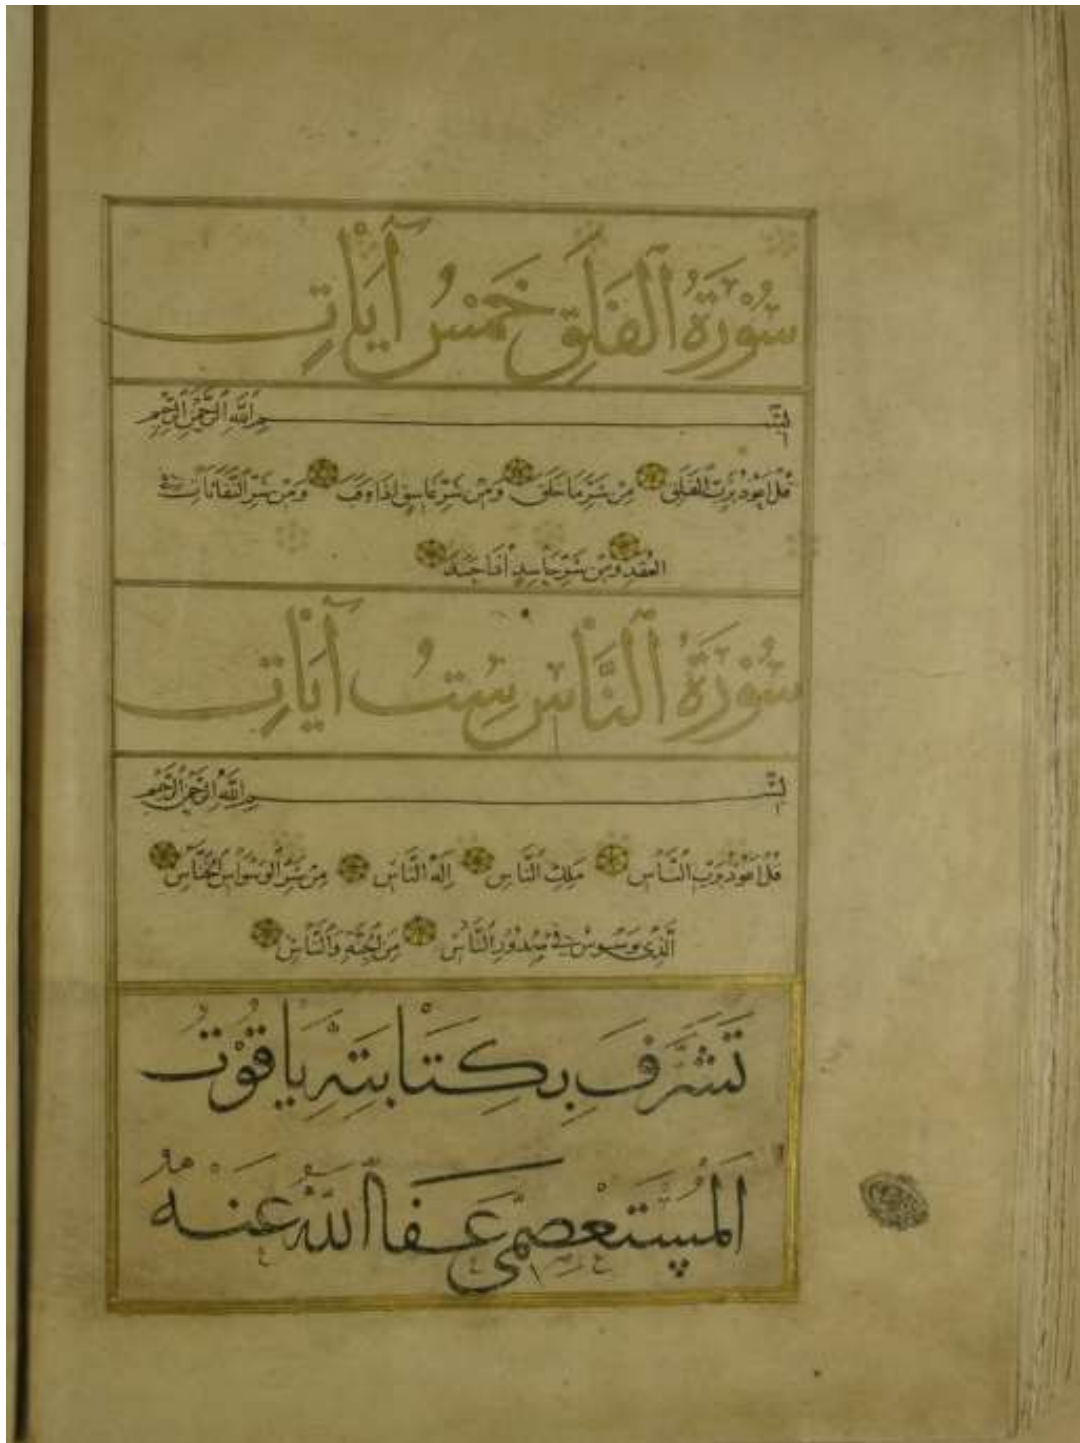 سُوْرَةُ ٱلْفَلَقِ خَمْسُ آيَاتٍ
بِسْمِ ٱللَّهِ ٱلرَّحْمٰنِ ٱلرَّحِيمِ
قُلْ أَعُوذُ بِرَبِّ ٱلْفَلَقِ مِنْ شَرِّ مَا خَلَقَ وَمِنْ شَرِّ غَاسِقٍ إِذَا وَقَبَ وَمِنْ شَرِّ ٱلنَّفَّاثَاتِ فِي
ٱلْعُقَدِ وَمِنْ شَرِّ حَاسِدٍ إِذَا حَسَدَ
سُوْرَةُ ٱلنَّاسِ سِتُّ آيَاتٍ
بِسْمِ ٱللَّهِ ٱلرَّحْمٰنِ ٱلرَّحِيمِ
قُلْ أَعُوذُ بِرَبِّ ٱلنَّاسِ مَلِكِ ٱلنَّاسِ إِلٰهِ ٱلنَّاسِ مِنْ شَرِّ ٱلْوَسْوَاسِ ٱلْخَنَّاسِ
ٱلَّذِي يُوَسْوِسُ فِي صُدُورِ ٱلنَّاسِ مِنَ ٱلْجِنَّةِ وَٱلنَّاسِ
تَشَرَّفَ بِكِتَابَتِهِ يَاقُوْتُ
ٱلْمُسْتَعْصِمِي عَفَا ٱللَّهُ عَنْهُ